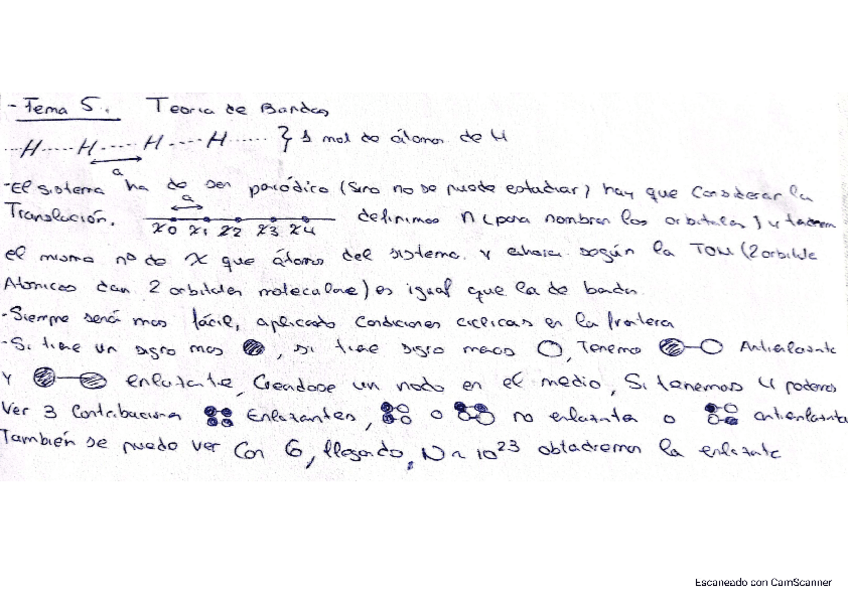 - Tema 5. Teoria de Bandas
...H.....H.....H....H...... } 1 mol de átomos de H
a
-El sistema ha de ser periódico (Sino no se puede estudiar) hay que Considerar la
a
Translación. definimos n (para nombrar los orbitales) y
X0 X1 X2 X3 X4
el mismo nº de X que átomos del sistema. y ahora según la TOM (2 orbitale
Atomicos dan 2 orbitales moleculares) es igual que la de banda.
-Siempre será mas fácil, aplicado Condiciones ciclicas en la frontera
-Si tiene un signo mas , si tiene signo menos , Tenemo Antienlazante
y enlazante, Creandose un nodo en el medio, Si tenemos 4 podemos
Ver 3 Contribuciones Enlazantes, o no enlazante o antienlazante
También se puede ver Con 6, llegando, N ~ 10^23 obtadremos la enlazante
Escaneado con CamScanner